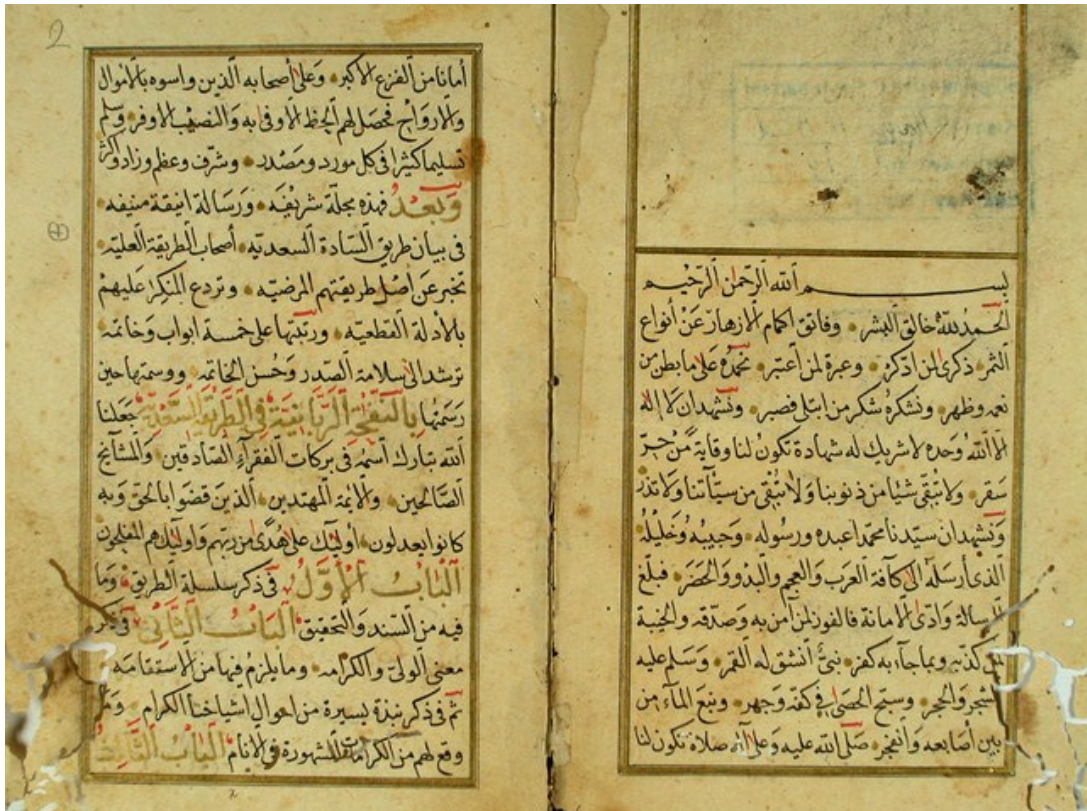 بسم الله الرحمن الرحيم
الحمد لله خالق البشر وفاتق اكمام الازهار عن أنواع
الثمر ذكرى لمن ادكر وعبرة لمن اعتبر نحمده على ما بطن من
نعمه وظهر ونشكره شكر من ابتلى فصبر ونشهد ان لا اله
الا الله وحده لا شريك له شهادة تكون لنا وقاية من حر
سقر ولا تبقى شيئا من ذنوبنا ولا تبقى من سيآتنا ولا تذر
ونشهد ان سيدنا محمدا عبده ورسوله وحبيبه وخليله
الذى أرسله الى كافة العرب والعجم والبدو والحضر فبلغ
الرسالة وادى الامانة فالفوز لمن آمن به وصدقه والخيبة
لمن كذبه وبما جآء به كفر نبى انشق له القمر وسلم عليه
الشجر والحجر وسبح الحصى فى كفه وجهر ونبع المآء من
بين أصابعه وانفجر صلى الله عليه وعلى آله صلاة تكون لنا
2
أمانا من الفزع الاكبر وعلى أصحابه الذين واسوه بالاموال
والارواح فحصل لهم الحظ الاوفى به والنصيب الاوفر وسلم
تسليما كثيرا فى كل مورد ومصدر وشرف وعظم وزاد واكثر
وبعد فهذه مجلة شريفه ورسالة انيقة منيفه
فى بيان طريق السادة السعديه أصحاب الطريقة العليه
تخبر عن اصل طريقتهم المرضيه وتردع المنكر عليهم
بالادلة القطعيه ورتبتها على خمسة ابواب وخاتمه
ترشد الى سلامة الصدر وحسن الخاتمه ووسمتها حين
رسمتها بالنفحة الربانية فى الطريقة السعدية جعلنا
الله تبارك اسمه فى بركات الفقرآء الصادقين والمشايخ
الصالحين والائمة المهتدين الذين قضوا بالحق وبه
كانوا يعدلون أوليك على هدى من ربهم واوليك هم المفلحون
الباب الأول فى ذكر سلسلة الطريق وما
فيه من السند والتحقيق الباب الثانى فى ذكر
معنى الولى والكرامه وما يلزم فيها من الاستقامه
ثم فى ذكر نبذة يسيرة من احوال اشياخنا الكرام وما
وقع لهم من الكرامات المشهورة فى الانام الباب الثالث